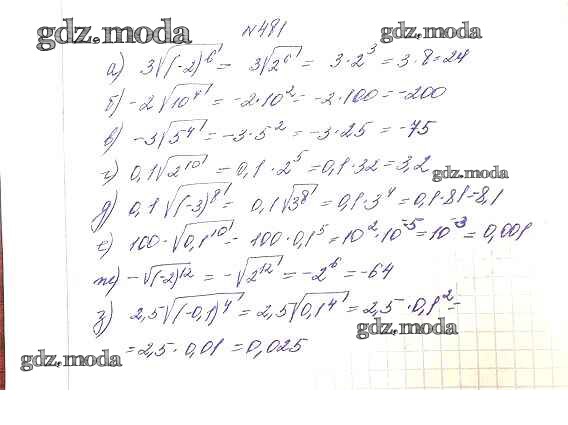 gdz.moda
№481
gdz.moda
а) 3√(-2)⁶ = 3√2⁶ = 3·2³ = 3·8=24
б) -2√10⁴ = -2·10² = -2·100 = -200
в) -3√5⁴ = -3·5² = -3·25 = -75
г) 0,1√2¹⁰ = 0,1·2⁵ = 0,1·32 = 3,2
gdz.moda
д) 0,1√(-3)⁸ = 0,1√3⁸ = 0,1·3⁴ = 0,1·81=8,1
е) 100·√0,1¹⁰ = 100·0,1⁵ = 10²·10⁻⁵ = 10⁻³ = 0,001
ж) -√(-2)¹² = -√2¹² = -2⁶ = -64
з) 2,5√(-0,1)⁴ = 2,5√0,1⁴ = 2,5·0,1² =
gdz.moda
= 2,5·0,01 = 0,025
gdz.moda